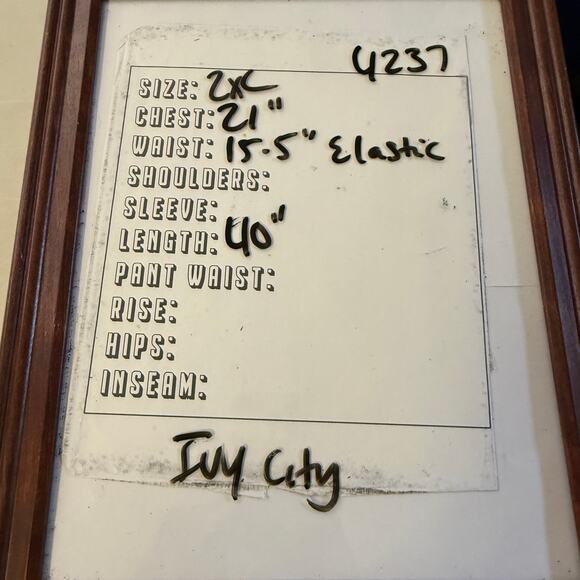 4237
SIZE: 2XL
CHEST: 21"
WAIST: 15.5" Elastic
SHOULDERS:
SLEEVE:
LENGTH: 40"
PANT WAIST:
RISE:
HIPS:
INSEAM:
Ivy City